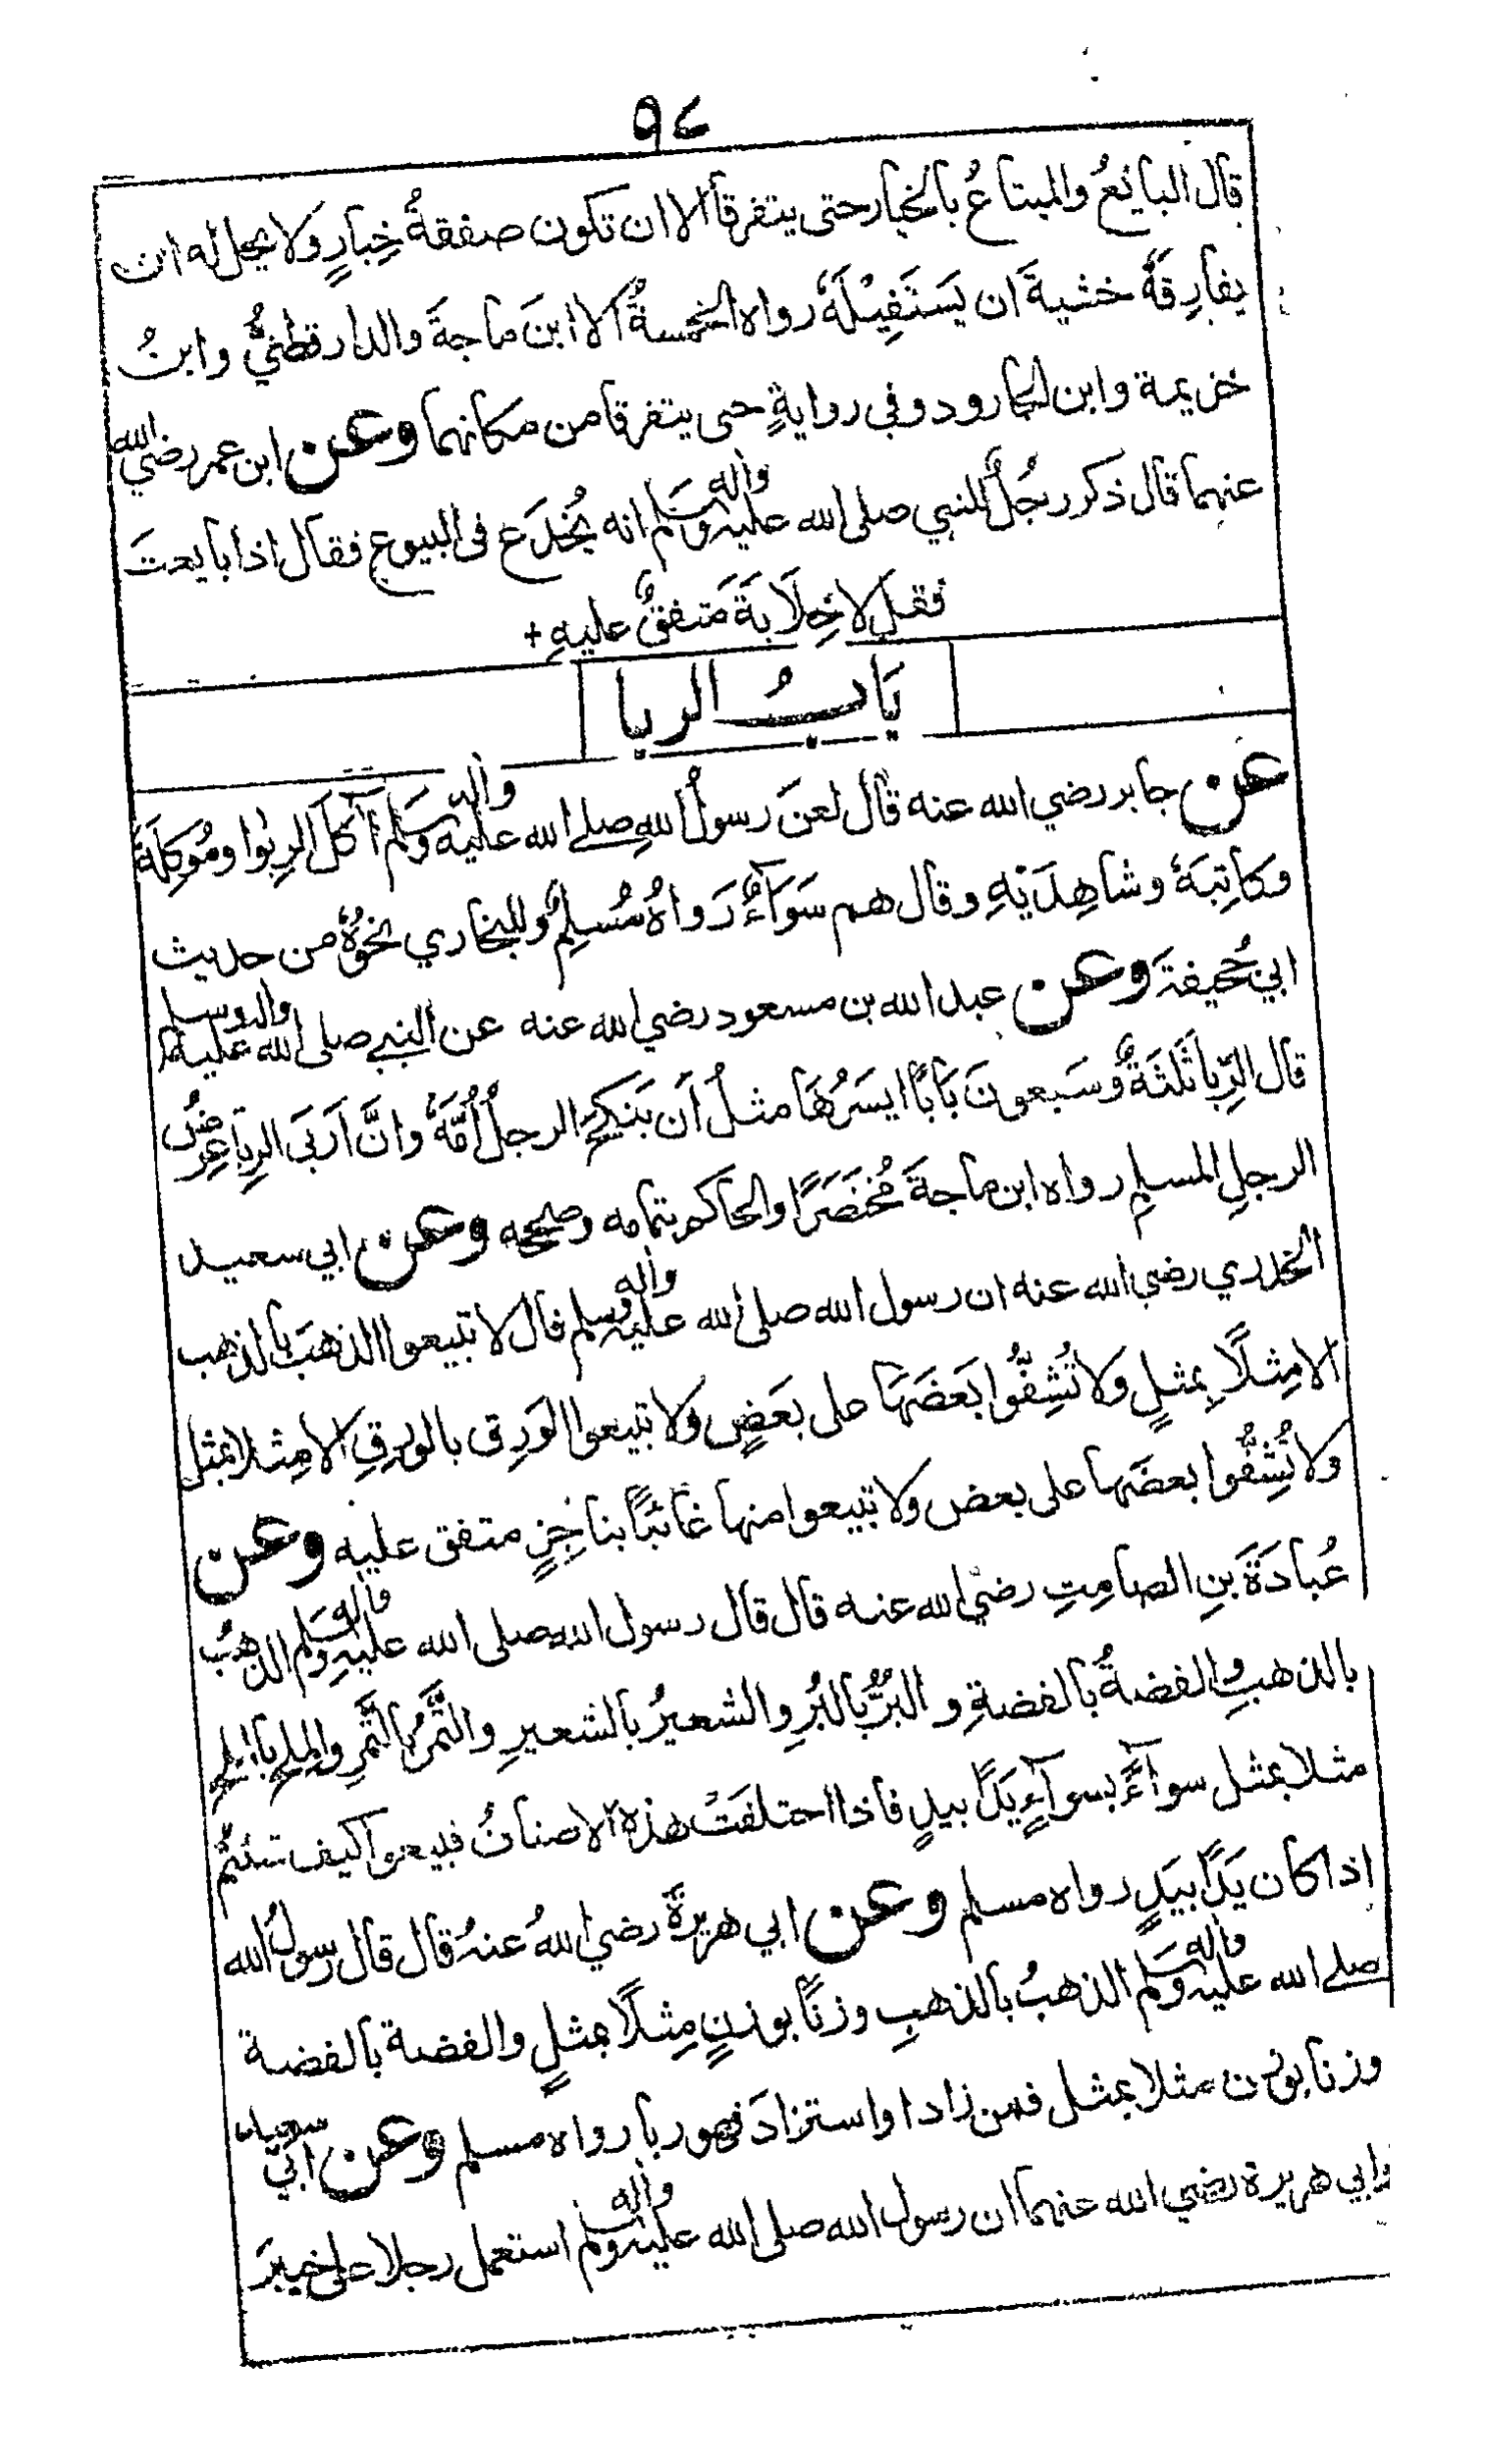 ٩٤
قال البايعُ والمبتاعُ بالخيار حتى يتفرقا الا ان تكون صفقةُ خِيارٍ ولا يحل له ان
يفارِقهٗ خشيةَ ان يَسْتَقِيْلَهٗ رواه الخمسةُ الا ابنَ ماجةَ والدارقطنيُّ وابنُ
خزيمة وابن الجارود وفي روايةٍ حتى يتفرقا من مكانهما وعن ابن عمر رضي الله
عنهما قال ذكر رجُلٌ للنبي صلى الله عليه واٰله وسَلم انه يُخْدَع في البيوع فقال اذا بايعتَ
فقل لا خِلَابَةَ متفقٌ عليهِ +
بَابُ الربا
عن جابر رضي الله عنه قال لعنَ رسولُ اللهِ صلے الله عليه واٰله وسَلم آكلَ الرِبٰوا ومُوكِلَهٗ
وكاتِبَهٗ وشاهِدَيْهِ وقال هم سَوَآءٌ رَواهُ مُسْلِمٌ وللبخاري نحوُهٗ من حديث
ابي جُحيفةَ وعن عبد الله بن مسعود رضي الله عنه عن النبے صلى الله عليه واٰله وسلم
قال الرِّبا ثَلٰثَةٌ وسَبعونَ بَابًا ايسَرُهَا مثلُ اَن يَنكِحَ الرجلُ اُمَّهٗ وانَّ اَربَى الرِبَا عِرضُ
الرجلِ المسلمِ رواه ابن ماجةَ مُختَصَرًا والحاكم بتمامه وصححه وعن ابي سعيد
الخدري رضي الله عنه ان رسول الله صلى الله عليه واٰله وسلم قال لا تبيعوا الذهبَ بالذهب
الا مِثلًا بِمثلٍ ولا تُشِفُّوا بَعضَهَا على بعَضٍ ولا تبيعوا الوَرِق بالورِقِ الا مِثلا بمثل
ولا تُشِفُّوا بعضَها على بعض ولا تبيعوا منها غائبًا بناجِزٍ متفق عليه وعن
عُبادَةَ بنِ الصامِتِ رضي الله عنه قال قال رسول الله صلى الله عليه واٰله وسَلم الذهبُ
بالذهبِ والفضةُ بالفضةِ و البُرُّ بالبُرِ والشعيرُ بالشعيرِ والتَّمرُ بالتَّمرِ والملحُ بالملحِ
مثلا بمثل سوآءً بسوآءٍ يَدًا بيدٍ فاذا اختلفَتْ هذه الاصنافُ فبيعوا كيف شئتم
اذا كان يَدًا بيَدٍ رواه مسلم وعن ابي هريرةَ رضي اللهُ عنهُ قال قال رسولُ الله
صلے الله عليه واٰله وسَلم الذهبُ بالذهبِ وزنًا بوزنٍ مِثلًا بمثلٍ والفضة بالفضة
وزنا بوزن مثلا بمثل فمن زاد او استزادَ فهو ربا رواه مسلم وعن ابي سعيد
وابي هريرة رضي الله عنهما ان رسول الله صلى الله عليه واٰله وسلم استعمل رجلا على خيبرَ